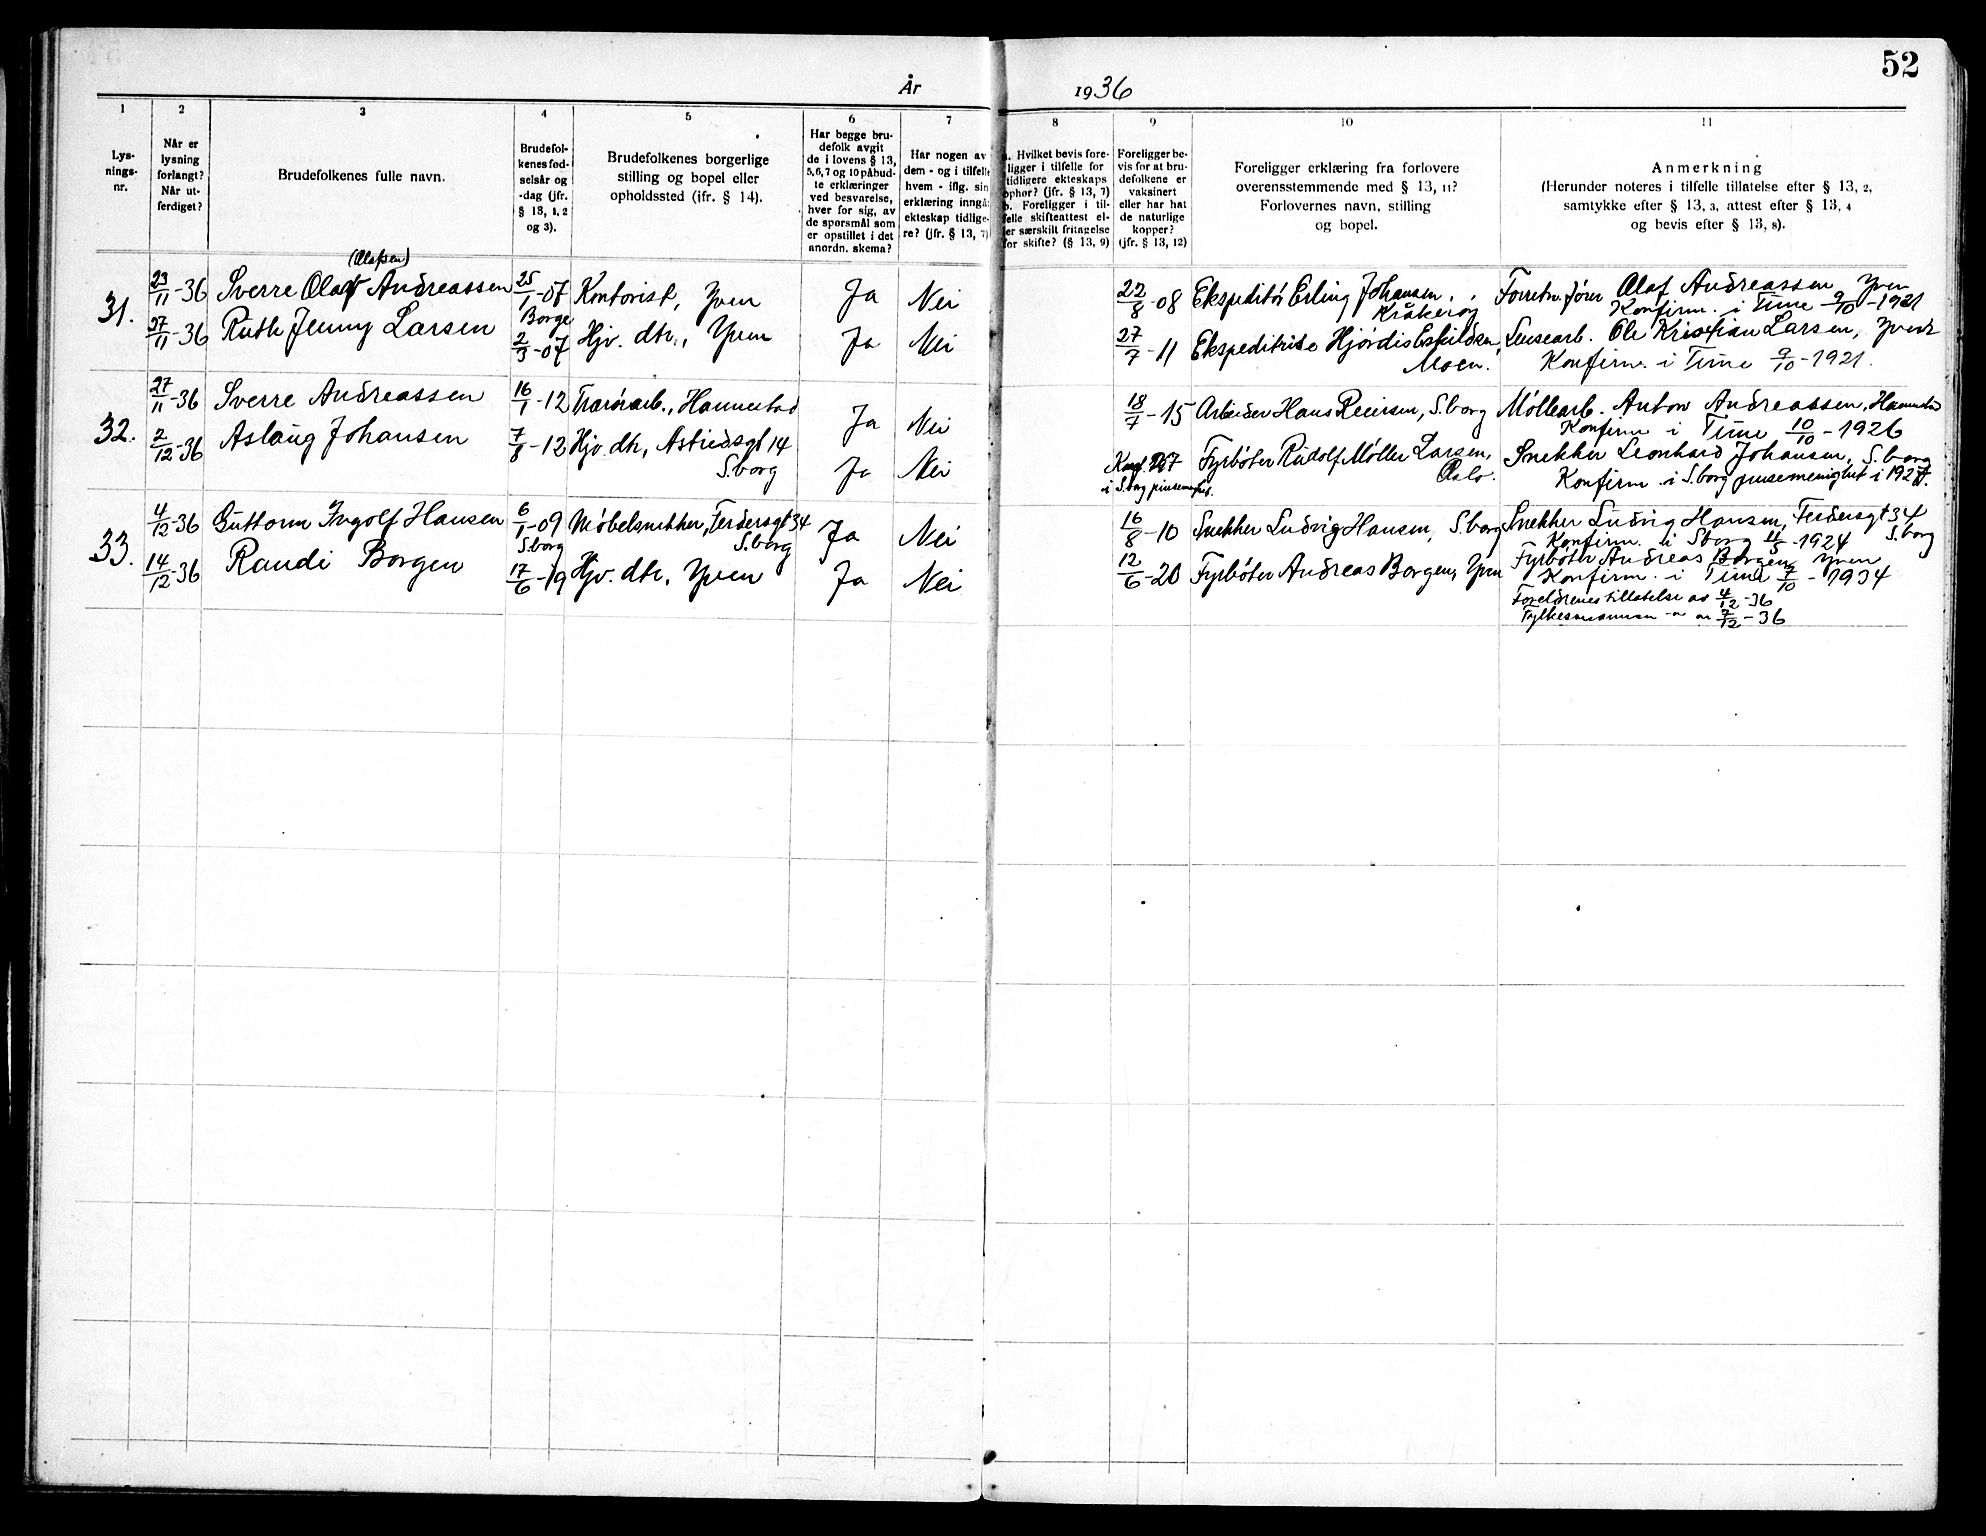 52
År 1936
1 2 3 4 5 6 7 8 9 10 11
Lys-
nings-
nr.
Når er
lysning
forlangt?
Når ut-
ferdiget?
Brudefolkenes fulle navn.
Brudefol-
kenes fød-
selsår og
-dag (jfr.
§ 13, 1, 2
og 3).
Brudefolkenes borgerlige
stilling og bopel eller
opholdssted (jfr. § 14).
Har begge bru-
defolk avgit
de i lovens § 13,
5, 6, 7 og 10 påbud-
te erklæringer
ved besvarelse,
hver for sig, av
de spørsmål som
er opstillet i det
anordn. skema?
Har nogen av
dem - og i tilfelle
hvem - iflg. sin
erklæring inngå
ekteskap tidlige-
re? (jfr. § 13, 7)
a. Hvilket bevis fore-
ligger i tilfelle for
tidligere ekteskaps
ophør? (jfr. § 13, 7)
b. Foreligger i til-
felle skifteattest el-
er særskilt fritagelse
for skifte? (§ 13, 9)
Foreligger be-
vis for at bru-
defolkene er
vaksinert
eller har hat
de naturlige
kopper?
(jfr. § 13, 12)
Foreligger erklæring fra forlovere
overensstemmende med § 13, 11?
Forlovernes navn, stilling
og bopel.
Anmerkning
(Herunder noteres i tilfelle tillatelse efter § 13, 2,
samtykke efter § 13, 3, attest efter § 13, 4
og bevis efter § 13, 8).
(Olafsen)
31. 23/11-36 Sverre Olaf Andreassen 25/1-07 Kontorist, Yven Ja Nei 22/8-08 Ekspeditør Erling Johansen, Forretn.fører Olaf Andreassen Yven
Borge Kråkerøy Konfirm. i Tune 9/10-1921
27/11-36 Ruth Jenny Larsen 2/3-07 Hjv. dtr., Yven Ja Nei 27/7-11 Ekspeditrise Hjørdis Eskildsen, Lensearb. Ole Kristian Larsen, Yven
Moen. Konfirm. i Tune 9/10-1921.
32. 27/11-36 Sverre Andreassen 16/1-12 Hannestad Ja Nei 18/7-15 Arbeider Hans Reiersen, S.borg Møllearb. Anton Andreassen,
Konfirm i Tune 10/10-1926
2/12-36 Aslaug Johansen 7/8-12 Hjv. dtr, Astridsgt 14 Ja Nei Konf. 27 Fyrbøter Rudolf Møller Larsen, Snekker Leonhard Johansen, S.borg
S.borg i S.borg Oslo. Konfirm. i S.borg pinsemenighet i 1927.
33. 4/12-36 Guttorm Ingolf Hansen 6/1-09 Møbelsnekker, Ferdersgt 34 Ja Nei 16/8-10 Snekker Ludvig Hansen, S.borg Snekker Ludvig Hansen, Ferdersgt 34
S.borg S.borg Konfirm. i S.borg 4/5-1924 S.borg
14/12-36 Randi Borgen 17/6-19 Hjv. dtr, Yven Ja Nei 12/6-20 Fyrbøter Andreas Borgen, Yven Fyrbøter Andreas Borgen, Yven
Konfirm. i Tune 7/10-1934
Foreldrenes tillatelse av 4/12-36
Fylkesmannen -"- av 7/12-36